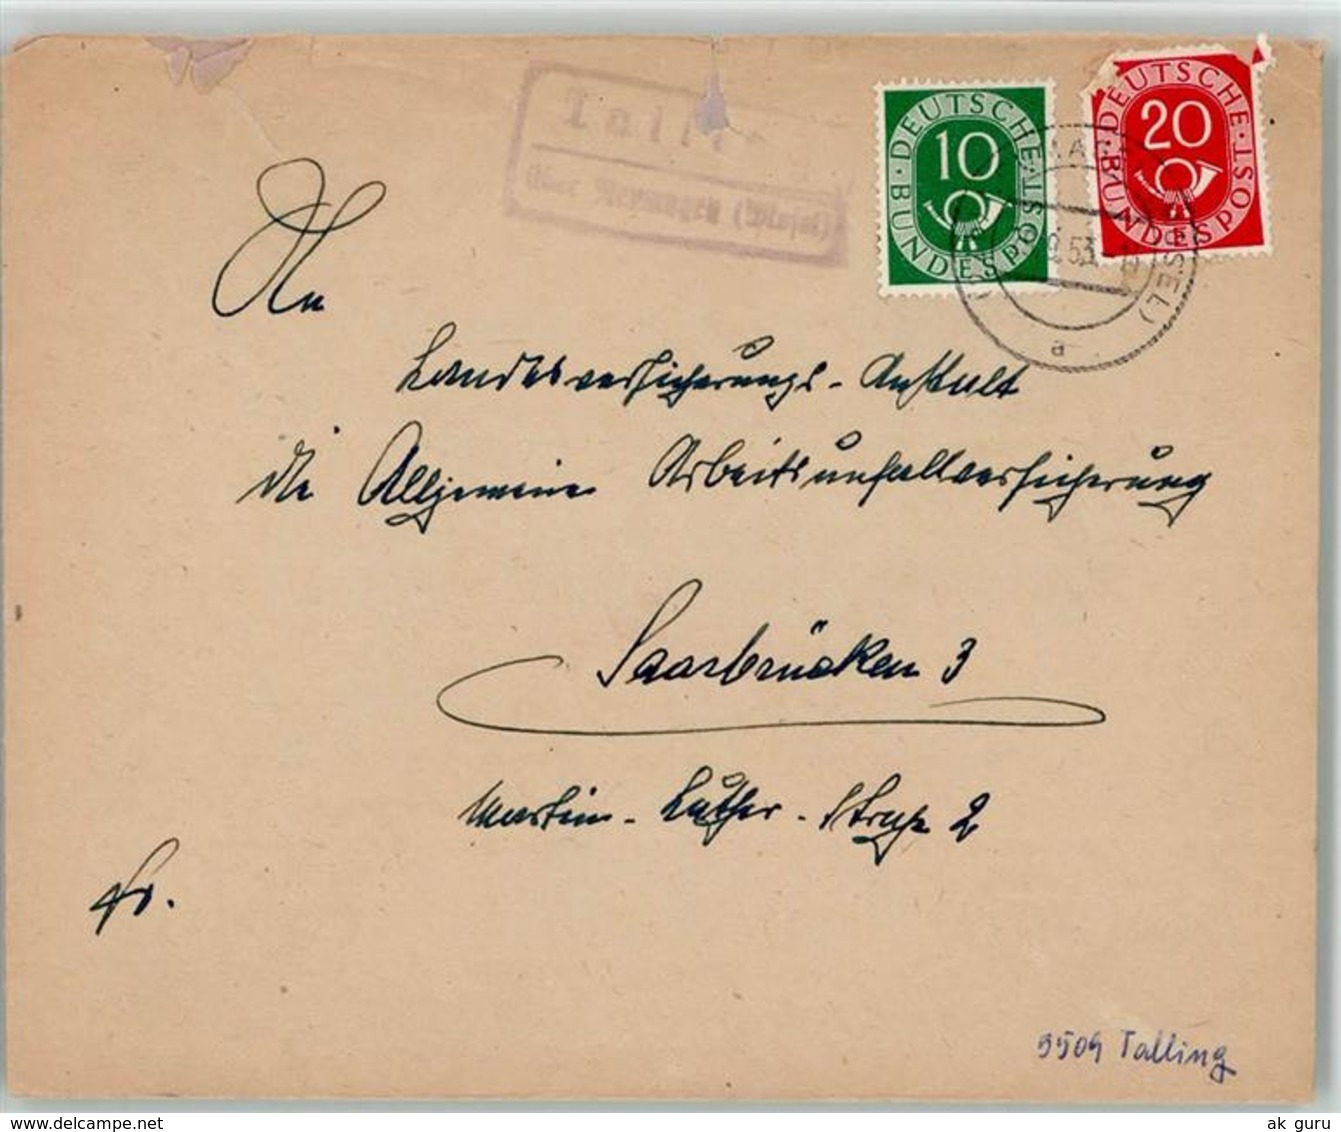 Talling
über Neumagen (Mosel)
DEUTSCHE BUNDESPOST
10
DEUTSCHE BUNDESPOST
20
53
a
An
Landesversicherungs-Anstalt
die Allgemeine Arbeitsunfallversicherung
Saarbrücken 3
Martin-Luther-Straße 2
Fr.
5509 Talling
ak guru